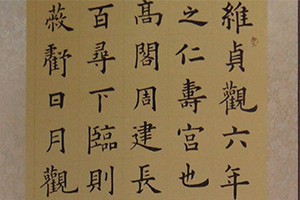 維貞觀六年
之仁壽宮也
高閣周建長
百尋下臨則
蔽虧日月觀